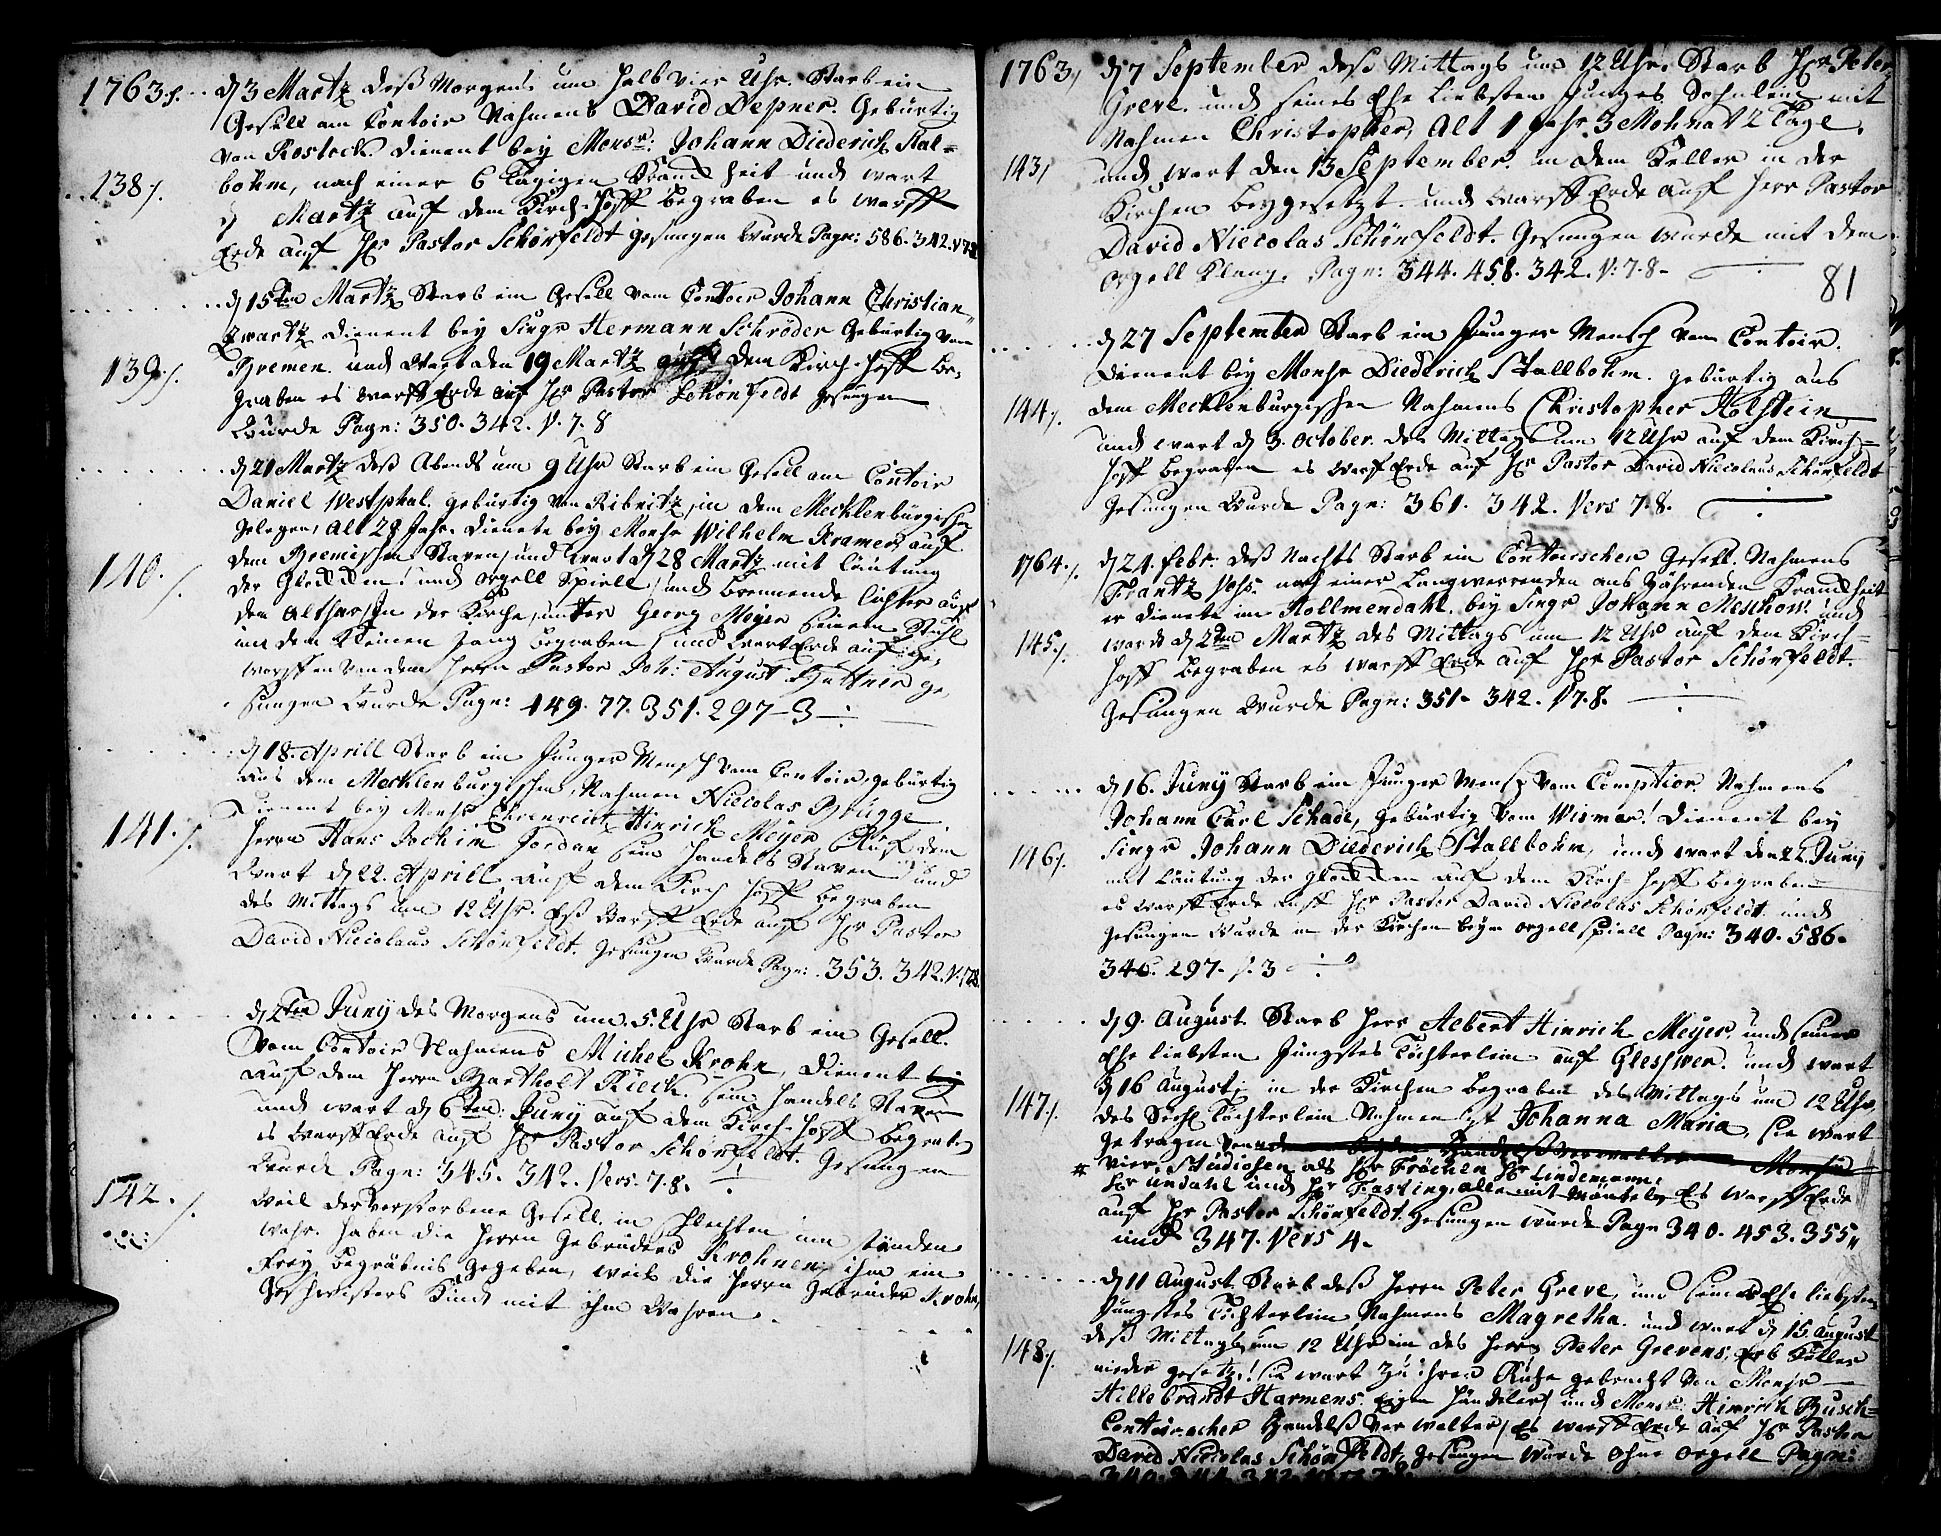 1763. d 3 Martz deß Morgens um halb vier Uhr. Starb ein
Gesell am Contoir Nahmens David Depner. Gebürtig
von Rostock. dienent bey Monsr: Johann Diederich Stal=
138. bohm, nach einer 6 tägigen Kranckheit und wart
d Martz auf dem Kirch-Hoff begraben es warff
Erde auf Hr Pastor Schönfeldt gesungen wurde Pagn: 586. 342. V. 7.8
d 15ten Martz Starb ein Gesell vom Contoir Johann Christian
Zwartz dienent bey Singr Hermann Schröder gebürtig von
139. Bremen. und wart den 19 Martz auff dem Kirch-Hoff be,
graben es warff Erde auf Hr Pastor Schönfeldt gesungen
Wurde Pagn: 350. 342. V. 7. 8
d 21 Martz deß Abends um 9 Uhr Starb ein Gesell am Contoir
Daniel Westphal. gebürtig von Ribnitz, in dem Mecklenburgischen
gelegen, Alt 28 Jahr. dienete bey Monsr Wilhelm Kramer auf
dem Bremischen Staven, und wart d 28 Martz mit läutung
140. der Glocken! und orgell Spiell, und brennende lichter auf
den Althar, in der Kirche, unter Georg Meyer seinem Stuhl
in dem kleinen gang begraben, und wart Erde auf ge,
worffen von dem Herrn Pastor Joh: August Büttner ge,
sungen Wurde Pagn: 149. 77. 351. 297-3
d 18. Aprill Starb ein Junger Mensch vom Contoir, gebürtig
aus dem Mecklenburgischen, Nahmen Niccolas Brügge
dienent bey Monsr Ehrenreich Hinrich Meyer Auf dem
141. Herrn Hans Jochim Jordan sein Handels Staven, und
Wart d 22. Aprill auf dem Kirch Hoff begraben
des Mittags um 12 Uhr. Eß Warff Erde auf Hr Pastor
David Niccolaus Schönfeldt. gesungen Wurde Pagn: 353. 342. V. 7.8.
d 2ten Juny des Morgens um 5. Uhr Starb ein Gesell
Vom Contoir Nahmens Michel Krohn, dienent bey
auf dem Herrn Bartholt Rieck. sein Handels Staven
und wart d 6ten: Juny auf dem Kirch-Hoff begraben
es Warff Erde auf Hr Pastor Schönfeldt. gesungen
Wurde Pagn: 345. 342. Vers. 7. 8.
142. Weil der verstorbene Gesell, in schlechten um ständen
wahr. haben die Herrn Gebrüders Krohnen, ihm ein
Frey begräbnis gegeben, weil die Herrn Gebrüder Krohn,
Geschwisters Kind mit ihm Wahren.
1763, d 7 September deß Mittags um 12 Uhr. Starb Hr Peter
Greve. und seines Ehe Liebsten Junges Söhnlein mit
Nahmen Christopher, Alt 1 Jahr 3 Mohnat 2 Tage,
143, und wart den 13 September. in dem Keller in der
Kirchen beygesetzt. und Warff Erde auf Herr Pastor
David Niecolas Schönfeldt. Gesungen wurde mit dem
orgell Klang. Pagn: 344. 458. 342. V: 7. 8-
81
d 27 September Starb ein Junger Mensch vom Contoir.
dienent bey Monsr Diederich Stallbohm. gebürtig aus
144. dem Mecklenburgischen Nahmens Christopher Holstein
und wart d 3. October. des Mittags um 12 Uhr auf dem Kirch=
Hoff begraben es warff Erde auf Hr Pastor David Niecolaus Schönfeldt
gesungen Wurde Pagn: 361. 342. Vers 7. 8.
1764. d 21. Febr. deß Nachts Starb ein Contoirschen Gesell. Nahmens
Frantz Vohs. nach einer Langwerrenden aus Zährenden Kranckheit
er dienete im Hollmendahl. bey Singr Johann Meschow. und
145. wardt d 2ten Martz des Mittags um 12 Uhr auf dem Kirch=
Hoff begraben es warff Erde auf Hr Pastor Schönfeldt.
gesungen Wurde Pagn: 351- 342. V 7. 8.
d 16. Juny Starb ein Junger Mensch vom Comptior. Nahmens
Johann Carl Schade, gebürtig vom Wismar! dienent bey
146. Singr Johann Diederich Stallbohm, und wart den 22 Juny
mit Läutung der Glocken auf dem Kirch-Hoff begraben
es Warff Erde auff Hr Pastor David Niecolas Schönfeldt. und
gesungen Wurde in der Kirchen beym orgell spiell Pagn: 340. 586.
346. 297. V. 3
d 9. August. Starb Herr Albert Hinrich Meyer, und seiner
Ehe liebsten Jüngstes Töchterlein auf Glesswer. und wart
147. d 16 August, in der Kirchen begraben des Mittags um 12 Uhr,
des Seel. Töchterlein Nahmen ist Johanna Maria, sie wart
getragen von
* vier Studiosen als Hr Fröchen Hr Lindemann,
und Hr Fasting, alle mit Mäntels Es warff Erde
auf Hr Pastor Schönfeldt. gesungen wurde Pagn 340. 453. 355,
und 347. Vers 4.
d 11 August Starb deß Herrn Peter Greve, und seiner Ehe liebsten
Jüngstes Töchterlein, Nahmens Magretha. und wart d 15. August
148. deß Mittags um 12 Uhr in des Herrn Peter Grevens, Erb Keller
nieder gesetz! sie wart zu ihrer Ruhe gebracht von Monsr
Hillebrandt Harmens. Eigen händeler, und Monsr: Hinrich Busch=
Contoirscher Handelß Verwalter, Es warff Erde auf Hr Pastor
David Niecolas Schönfeldt. gesungen wurde ohne orgell Pagn: